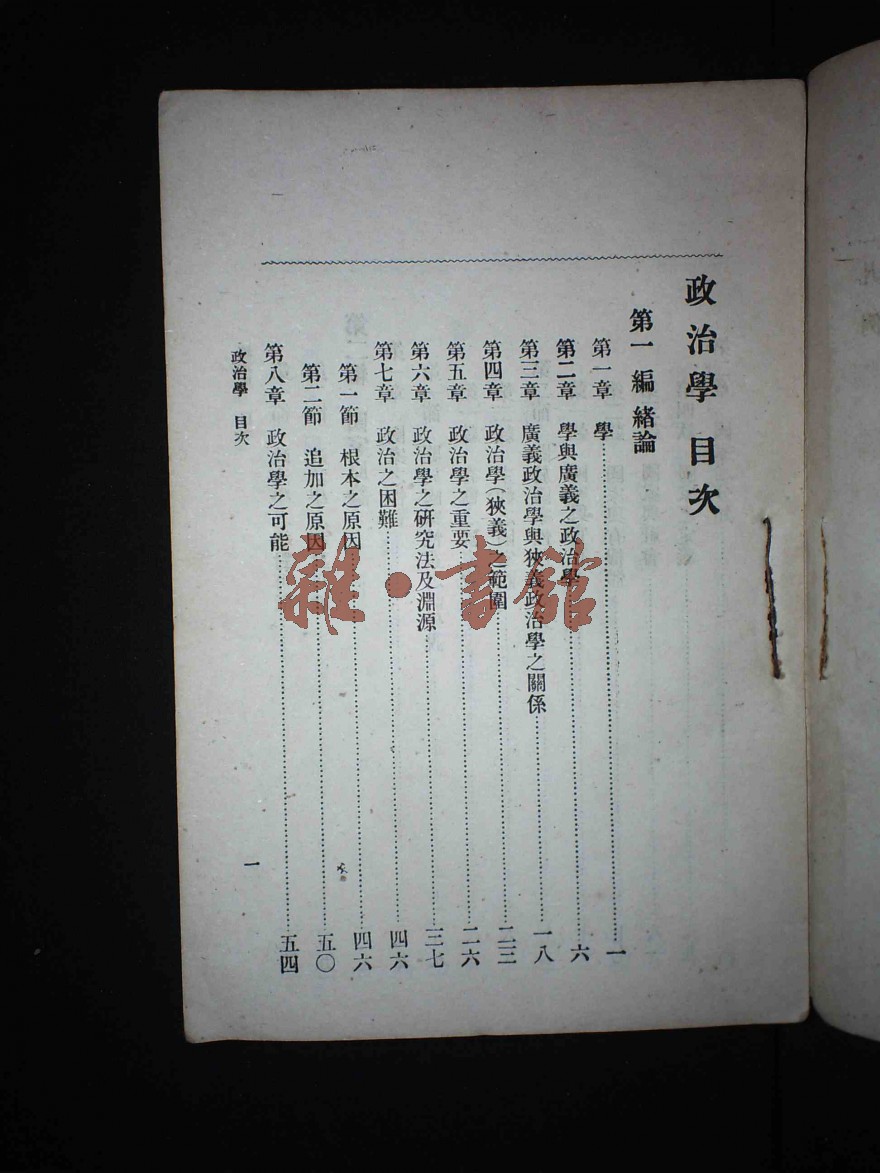 政治學 目次
第一編 緒論
第一章 學……一
第二章 學與廣義之政治學……六
第三章 廣義政治學與狹義政治學之關係……一八
第四章 政治學（狹義）之範圍……二三
第五章 政治學之重要……二六
第六章 政治學之研究法及淵源……三七
第七章 政治之困難……四六
第一節 根本之原因……四六
第二節 追加之原因……五〇
第八章 政治學之可能……五四
政治學 目次
一
雜·書館